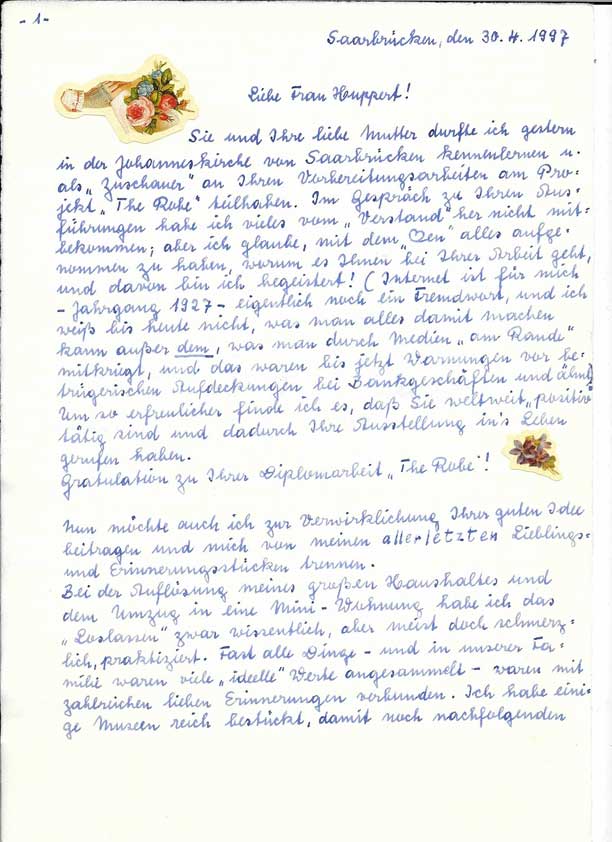 - 1 -
Saarbrücken, den 30.4.1997
Liebe Frau Huppert!
Sie und Ihre liebe Mutter durfte ich gestern
in der Johanneskirche von Saarbrücken kennenlernen u.
als „Zuschauer" an Ihren Vorbereitungsarbeiten am Pro-
jekt „The Robe" teilhaben. Im Gespräch zu Ihren Aus-
führungen habe ich vieles vom „Verstand" her nicht mit-
bekommen; aber ich glaube, mit dem alles aufge-
nommen zu haben, worum es Ihnen bei Ihrer Arbeit geht,
und davon bin ich begeistert! (Internet ist für mich
- Jahrgang 1927 - eigentlich noch ein Fremdwort, und ich
weiß bis heute nicht, was man alles damit machen
kann außer dem, was man durch Medien „am Rande"
mitkriegt, und das waren bis jetzt Warnungen vor be-
trügerischen Aufdeckungen bei Bankgeschäften und ähnl.)
Um so erfreulicher finde ich es, daß Sie weltweit „positiv"
tätig sind und dadurch Ihre Ausstellung in's Leben
gerufen haben.
Gratulation zu Ihrer Diplomarbeit „The Robe"!
Nun möchte auch ich zur Verwirklichung Ihrer guten Idee
beitragen und mich von meinen allerletzten Lieblings-
und Erinnerungsstücken trennen.
Bei der Auflösung meines großen Haushaltes und
dem Umzug in eine Mini-Wohnung habe ich das
„Loslassen" zwar wissentlich, aber meist doch schmerz-
lich, praktiziert. Fast alle Dinge - und in unserer Fa-
milie waren viele „ideelle" Werte angesammelt - waren mit
zahlreichen lieben Erinnerungen verbunden. Ich habe eini-
ge Museen reich bestückt, damit noch nachfolgenden